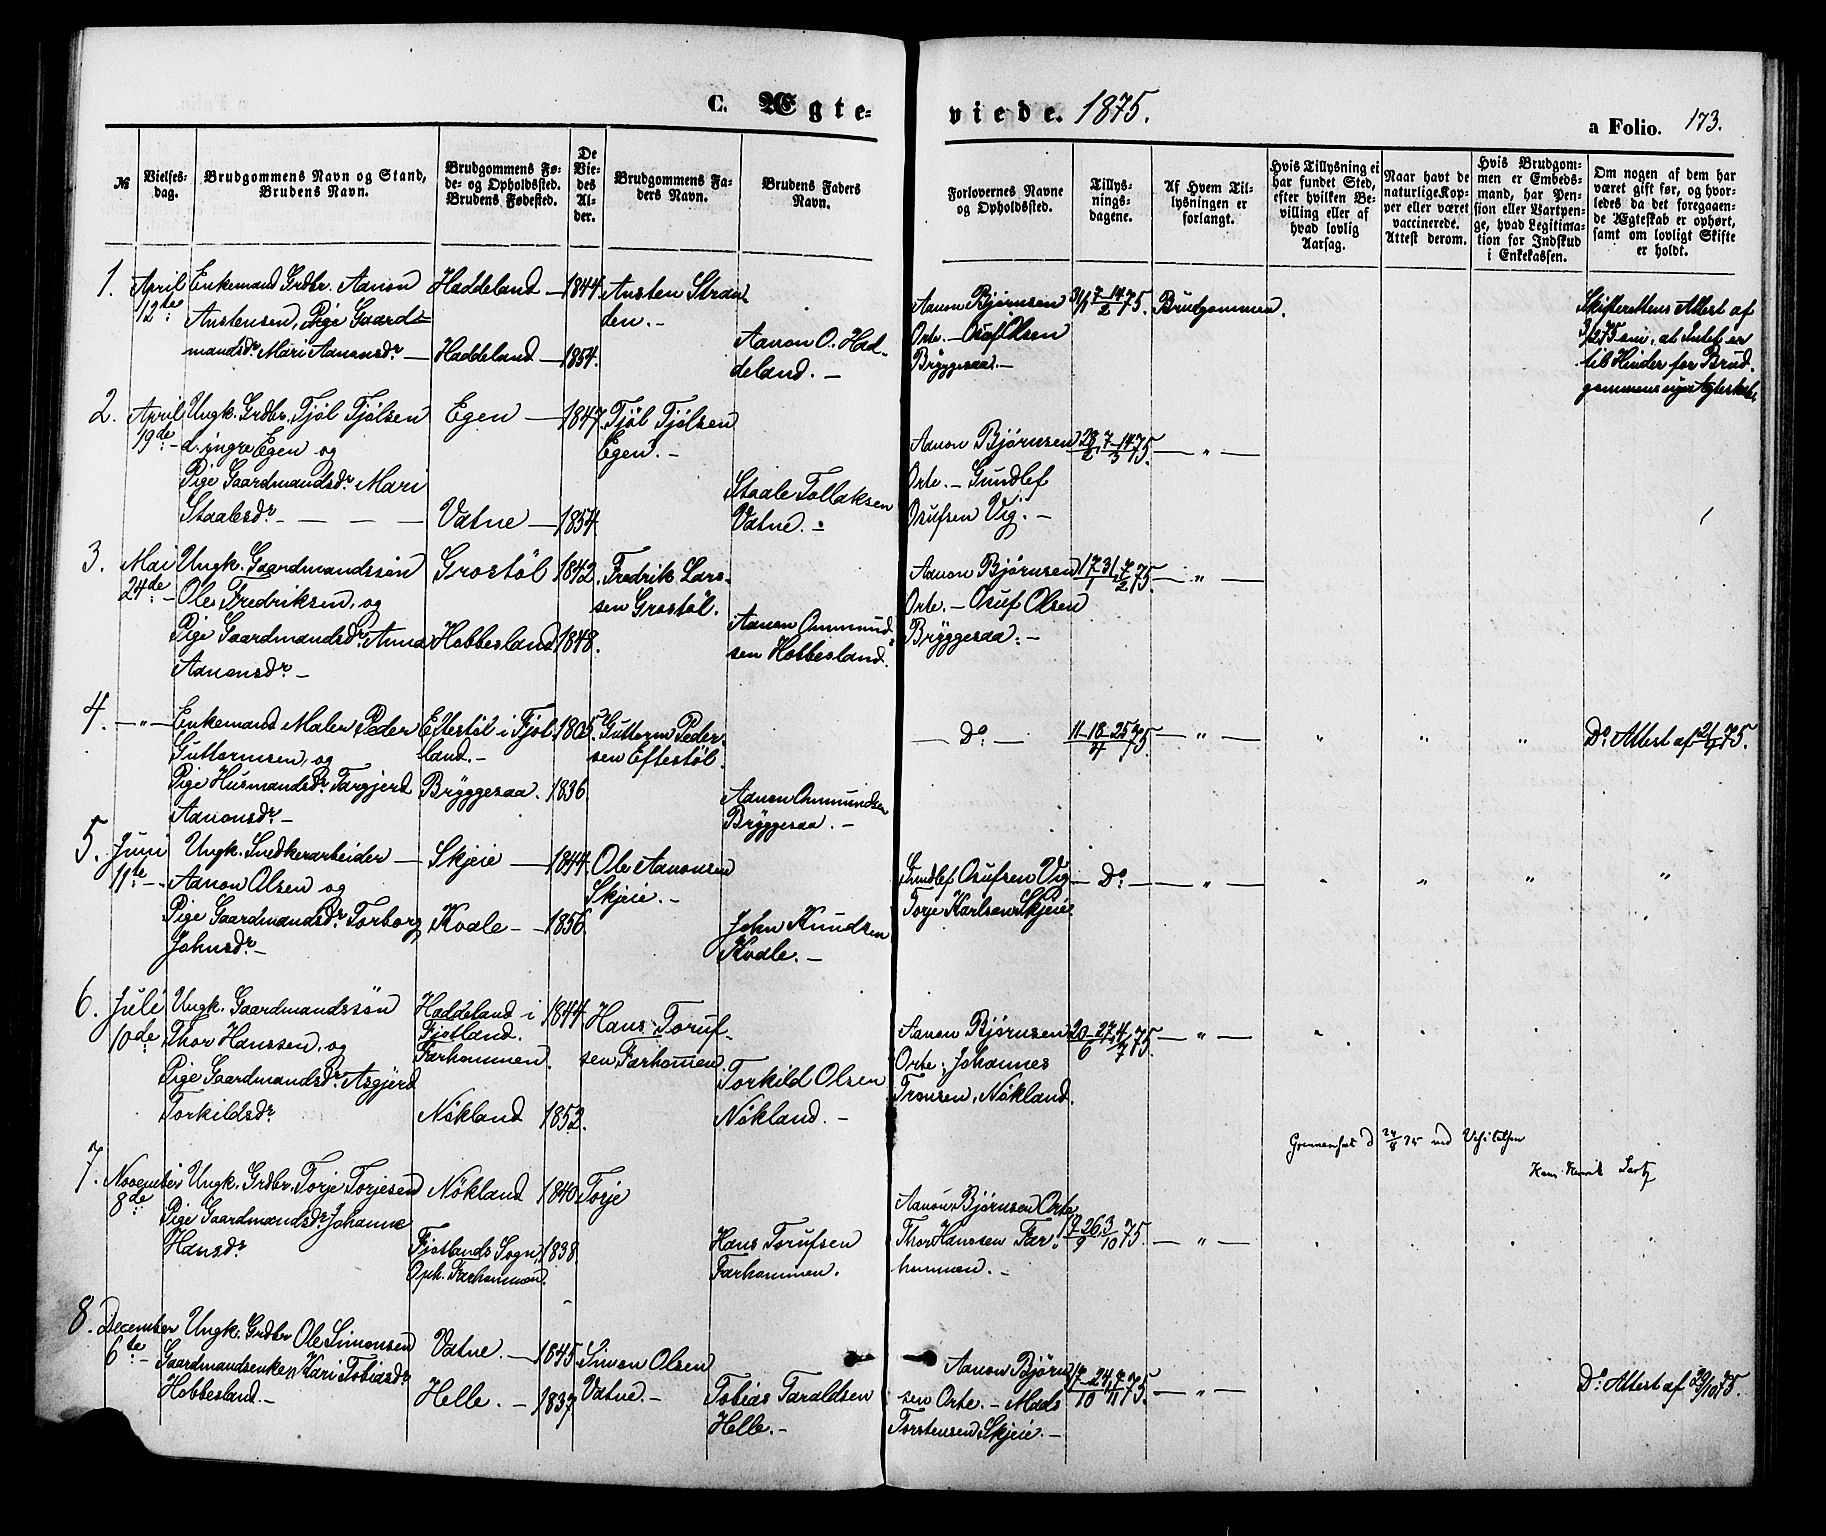 C. Ægte-
viede. 1875.
a Folio. 173.
№
Vielses-
dag.
Brudgommens Navn og Stand,
Brudens Navn.
Brudgommens Fø-
de- og Opholdssted.
Brudens Fødested.
De
Vie-
des
Al-
der.
Brudgommens Fa-
ders Navn.
Brudens Faders
Navn.
Forlovernes Navne
og Opholdssted.
Tillys-
nings-
dagene.
Af Hvem Til-
lysningen er
forlangt.
Hvis Tillysning ei
har fundet Sted,
efter hvilken Be-
villing eller af
hvad lovlig
Aarsag.
Naar havt de
naturlige Kop-
per eller været
vaccinerede.
Attest derom.
Hvis Brudgom-
men er Embeds-
mand, har Pen-
sion eller Vartpen-
ge, hvad Legitima-
tion for Indskud
i Enkekassen.
Om nogen af dem har
været gift før, og hvor-
ledes da det foregaaen-
de Ægteskab er ophørt,
samt om lovligt Skifte
er holdt.
1. April 12te
Enkemand Grdbr. Aanon
Austensen, Pige Gaard-
mandsdr. Mari Aanonsdr. —
Haddeland — 1844.
Haddeland — 1854.
Austen Stran-
den. —
Aanon O. Had-
deland. —
Aanon Bjørnsen
Orte. — Osuf Olsen
Bryggesaa. —
31/1 7-14/2 75.
Brudgommen.
Skifterettens Attest af
3/2 75 om, at Intet er
til Hinder for Brud-
gommens nye Ægteskab.
2. April 19de —
Ungk. Grdbr. Tjøl Tjølsen
d. yngre Egen og
Pige Gaardmandsdr. Mari
Staalesdr. — — —
Egen — 1847.
Vatne — 1854.
Tjøl Tjølsen
Egen. —
Staale Tollaksen
Vatne. —
Aanon Bjørnsen
Orte. — Gundlef
Osufsen Vig. —
28/2, 7-14/3 75.
— " —
3. Mai 24de —
Ungk. Gaardmandssøn
Ole Fredriksen, og
Pige Gaardmandsdr. Anna
Aanonsdr. —
Grostøl 1842.
Hobbesland 1848.
Fredrik Lars-
sen Grostøl.
Aanon Ommund-
sen Hobbesland.
Aanon Bjørnsen
Orte. — Osuf Olsen
Bryggesaa. —
17-31/1, 7/2 75.
— " —
4. — " —
Enkemand Maler Peder
Guttormsen, og
Pige Husmandsdr. Targjerd
Aanonsdr. —
Eftestøl i Fjot-
land. —
Bryggesaa. 1836.
Guttorm Peder-
sen Eftestøl.
Aanon Ommundsen
Bryggesaa. —
— Do. —
11-18-25/4 75
— " — " " "
Do. Attest af 2/4 75.
5. Juni 11te —
Ungk. Snedkerarbeider —
Aanon Olsen og
Pige Gaardmandsdr. Torborg
Johnsdr. —
Skjeie — 1844.
Kvale — 1856.
Ole Aanonsen
Skjeie. —
John Knudsen
Kvale. —
Gundlef Osufsen Vig
Torje Karlsen Skjeie
— Do. — — " — " " " "
6. Juli 10de
Ungk. Gaardmandssøn
Thor Hanssen, og
Pige Gaardmandsdr. Asgjerd
Torkildsdr.
Haddeland i 1844.
Fjotland.
Farhommen.
Nøkland 1852.
Hans Toruf-
sen Farhommen.
Torkild Olsen
Nøkland. —
Aanon Bjørnsen
Orte; Johannes
Tronsen, Nøkland.
20-27/6, 4/7 75.
— " —
Gjennemseet d 24/8 75 ved Visitatsen
7. November 8de
Ungk. Grdbr. Torje Torjesen
Pige Gaardmandsdr. Johanne
Hansdr.
Nøkland 1840
Fjotlands Sogn, 1838.
Oph. Farhommen.
Torje
Hans Torufsen
Farhommen.
Aanon Bjørnsen Orte,
Thor Hanssen Far-
hommen. —
19-26/9 3/10 75.
— " —
8. December 6te —
Ungk. Grdbr Ole Simonsen
Gaardmandsenken Kari Tobiasdr.
Hobbesland. —
Vatne. — 1845
Helle. — 1837
Simon Olsen
Vatne. —
Tobias Taraldsen
Helle. —
Aanon Bjørn-
sen Orte. — Mads
Torstensen Skjeie. —
17-24/10, 7/11 75.
— " —
Do. Attest af 29/10 75.